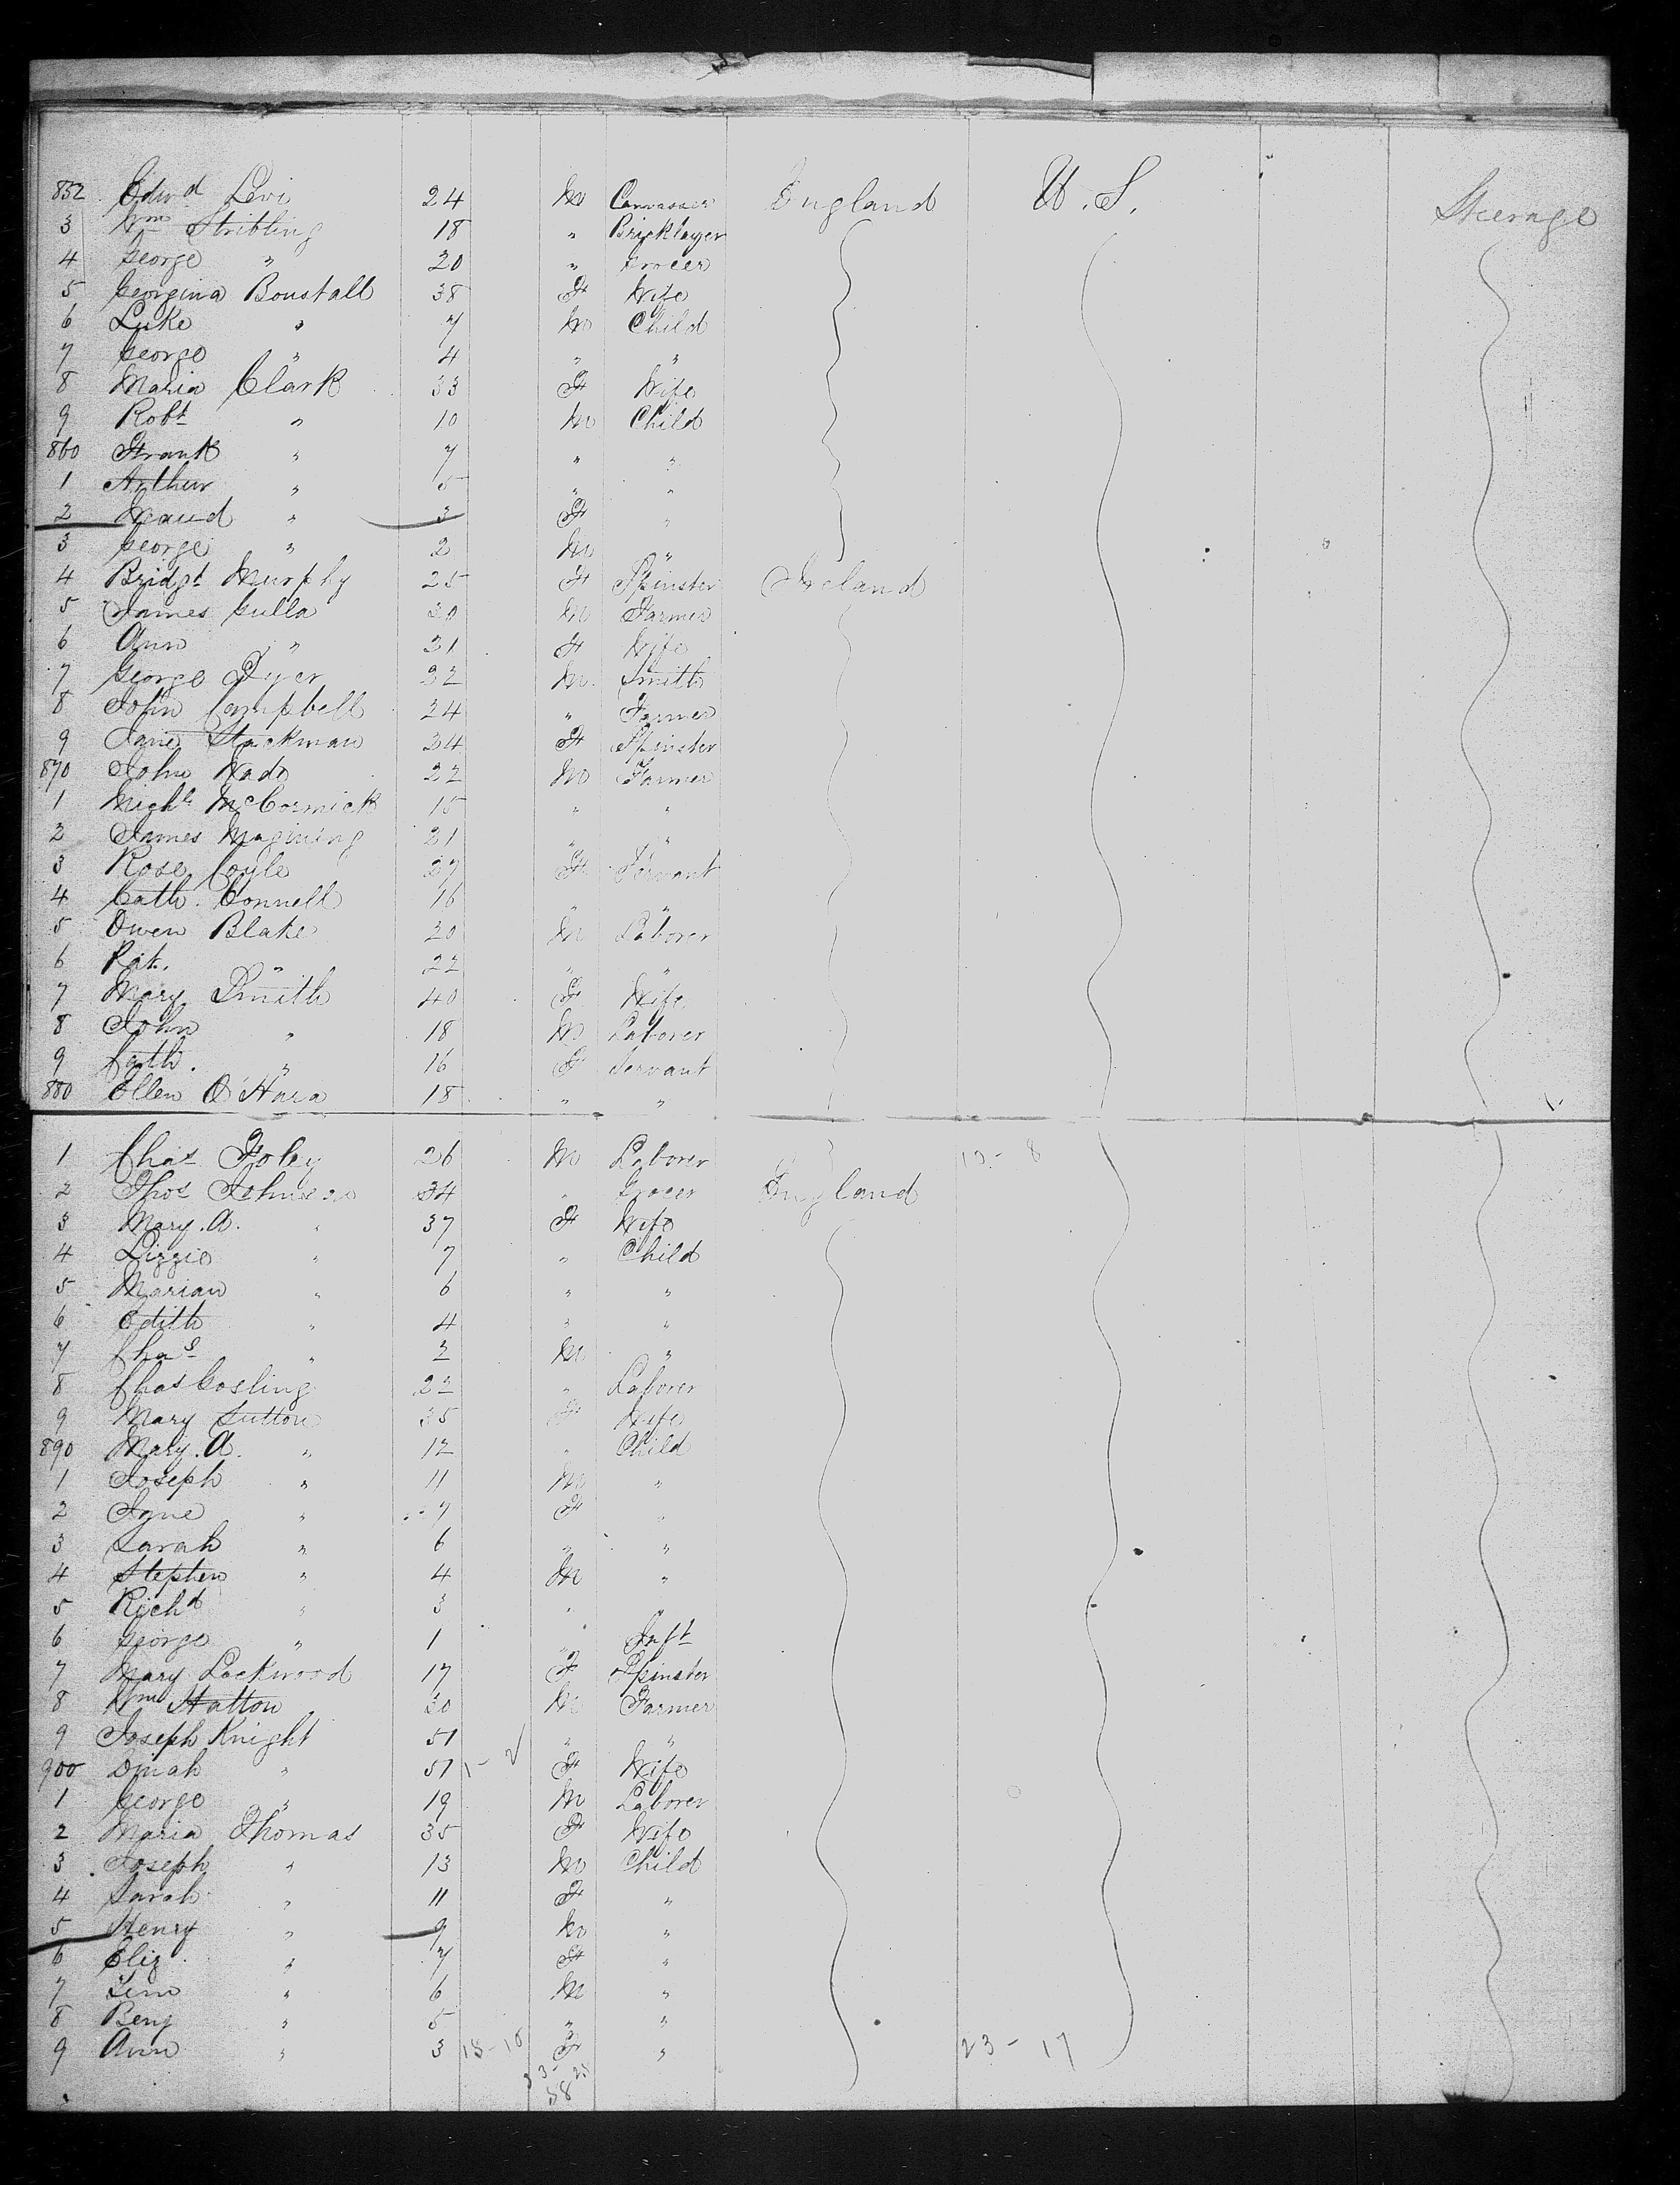 852 Edwd Levi 24 M Canvasser England U.S. Steerage
3 Wm Stribling 18 " Bricklayer
4 George " 20 " Grocer
5 Georgina Boustall 38 F Wife
6 Luke " 7 M Child
7 George " 4 " "
8 Maria Clark 33 F Wife
9 Robt " 10 M Child
860 Frank " 7 " "
1 Arthur " 5 " "
2 Maud " 3 F "
3 George " 2 M "
4 Bridgt Murphy 25 F Spinster Ireland
5 James Gulla 30 M Farmer
6 Ann " 31 F Wife
7 George Dyer 32 M Smith
8 John Campbell 24 " Farmer
9 Jane Stackman 34 F Spinster
870 John Wado 22 M Farmer
1 Michl McCormick 15 " "
2 James 21 " "
3 Rose Coyle 27 F Servant
4 Cath. Connell 16 " "
5 Owen Blake 20 M Laborer
6 Pat. " 22 " "
7 Mary Smith 40 F Wife
8 John " 18 M Laborer
9 Cath. " 16 F Servant
880 Ellen O'Hara 18 " "
1 Chas Foley 26 M Laborer 8
2 Thos Johnson 34 " Grocer England
3 Mary. A. " 37 F Wife
4 Lizzie " 7 " Child
5 Marian " 6 " "
6 Edith " 4 " "
7 Chas " 2 M "
8 Chas Gosling 22 " Laborer
9 Mary Sutton 35 F Wife
890 Mary. A. " 12 " Child
1 Joseph " 11 M "
2 Jane " 7 F "
3 Sarah " 6 " "
4 Stephen " 4 M "
5 Richd " 3 " "
6 George " 1 " Inft
7 Mary Lockwood 17 F Spinster
8 Wm Hatton 30 M Farmer
9 Joseph Knight 51 " "
900 Dinah " 51 F Wife
1 George " 19 M Laborer
2 Maria Thomas 35 F Wife
3 Joseph " 13 M Child
4 Sarah " 11 F "
5 Henry " 9 M "
6 Eliz " 7 F "
7 " 6 M "
8 Benj " 5 " "
9 Ann " 3 F " 23-17
58